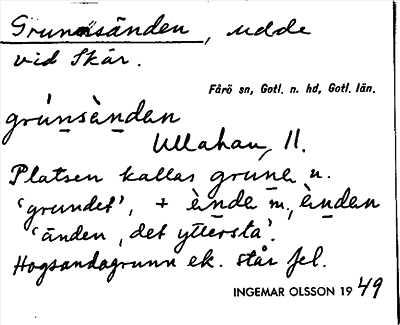 Grunnsänden, udde
vid Skär.
Fårö sn, Gotl. n. hd, Gotl. län.
grúnsàndan
Ullahau, 11.
Platsen kallas grune n.
'grundet', + ànde m., àndan
'änden, det yttersta'.
Hogsandagrunn ek. står fel.
INGEMAR OLSSON 1949